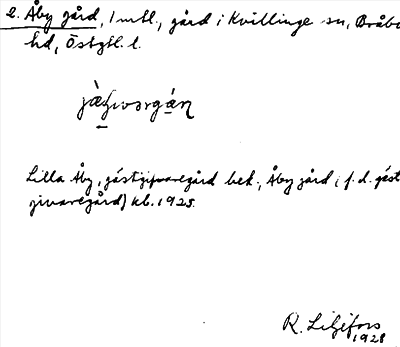 l. Åby gård, 1 mtl., gård i Kvillinge sn, Bråbo
hd, Östgtl. l.
Lilla Åby, gästgivaregård bek., Åby gård, f. d. gäst
givaregård) kb. 1925.
R. Liljefors
1928